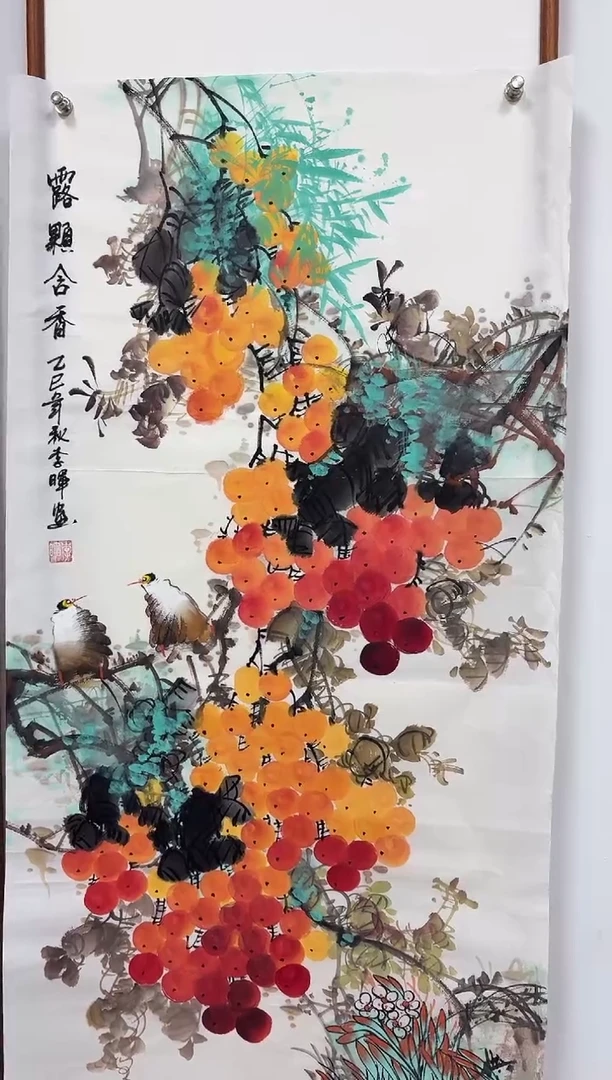 露顆含香
乙巳年秋李暉画